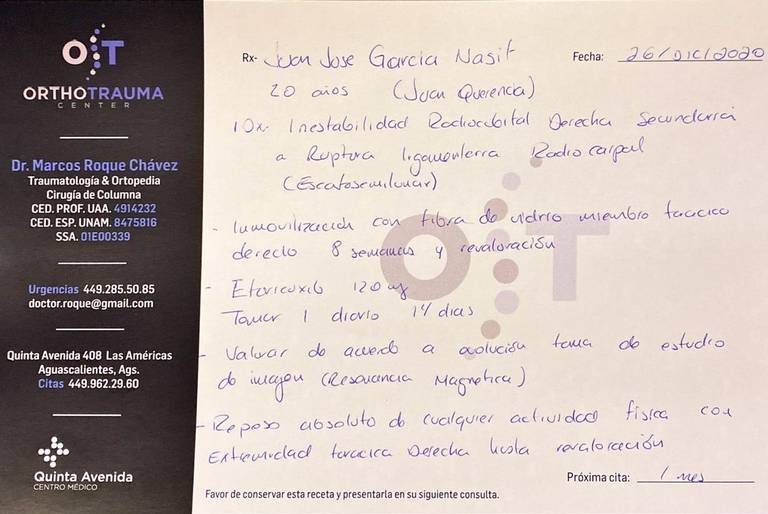 OT
ORTHOTRAUMA
CENTER
Dr. Marcos Roque Chávez
Traumatología & Ortopedia
Cirugía de Columna
CED. PROF. UAA. 4914232
CED. ESP. UNAM. 8475816
SSA. 01E00339
Urgencias 449.285.50.85
doctor.roque@gmail.com
Quinta Avenida 408 Las Américas
Aguascalientes, Ags.
Citas 449.962.29.60
Quinta Avenida
CENTRO MÉDICO
Rx- Juan Jose Garcia Nasit
Fecha: 26/DIC/2020
20 años (Juan Querencia)
IDx Inestabilidad Radiocubital Derecha Secundaria
a Ruptura ligamentaria Radio carpal
(Escafosemilunar)
- Inmovilización con fibra de vidrio miembro toracico
derecho 8 semanas y revaloración
- Etoricoxib 120 mg
Tomar 1 diario 14 dias
- Valorar de acuerdo a evolución toma de estudio
de imagen (Resonancia Magnetica)
- Reposo absoluto de cualquier actividad fisica con
Extremidad toracica Derecha hasta revaloración
Próxima cita: 1 mes
Favor de conservar esta receta y presentarla en su siguiente consulta.
OT